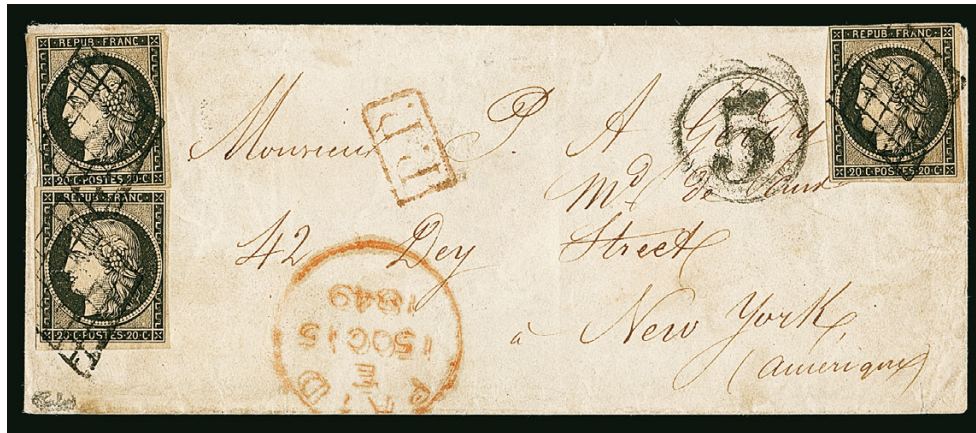 REPUB·FRANC·
20·C·POSTES·20·C·
REPUB·FRANC·
20·C·POSTES·20·C·
REPUB·FRANC·
20·C·POSTES·20·C·
P.P.
5
Monsieur P. A
Md de
42 Dey Street
à New York
(amérique)
PAID
15OC15
1849